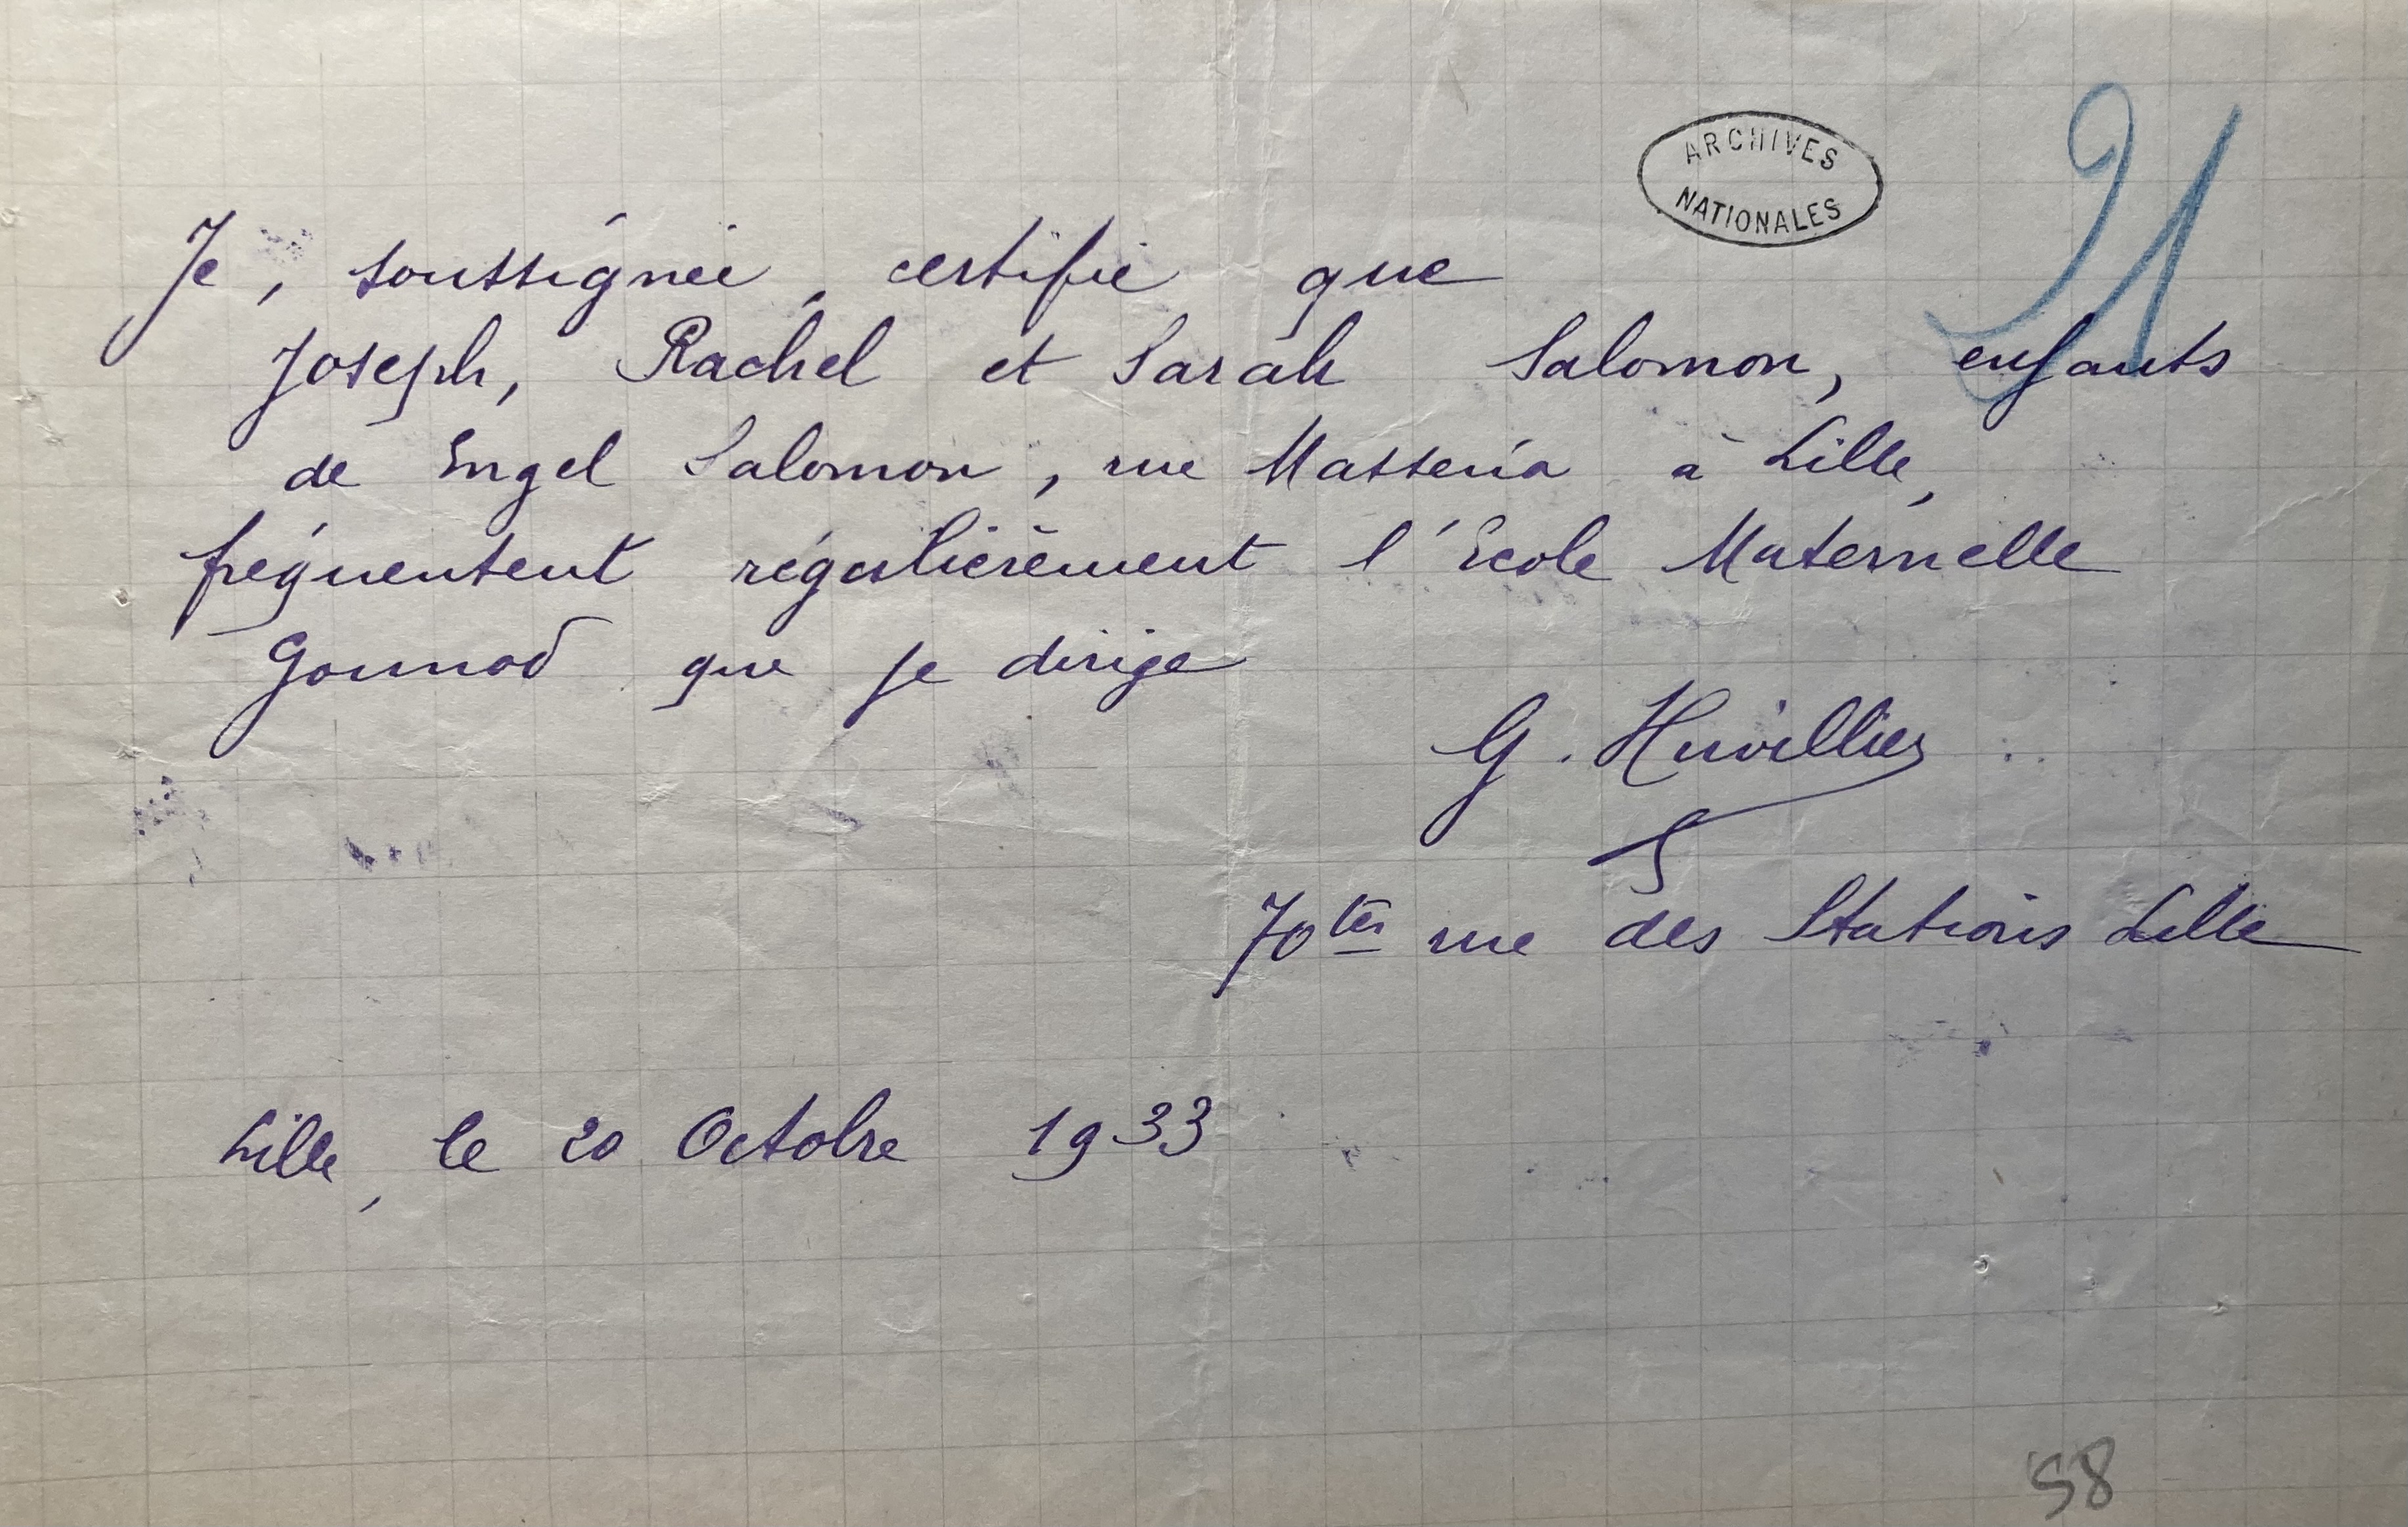 ARCHIVES
NATIONALES
21
Je, soussignée, certifie que
Joseph, Rachel et Sarah Salomon, enfants
de Engel Salomon, rue Masséna à Lille,
fréquentent régulièrement l'Ecole Maternelle
Gounod que je dirige
G. Huvillier
70ter rue des Stations Lille
Lille, le 20 Octobre 1933
58